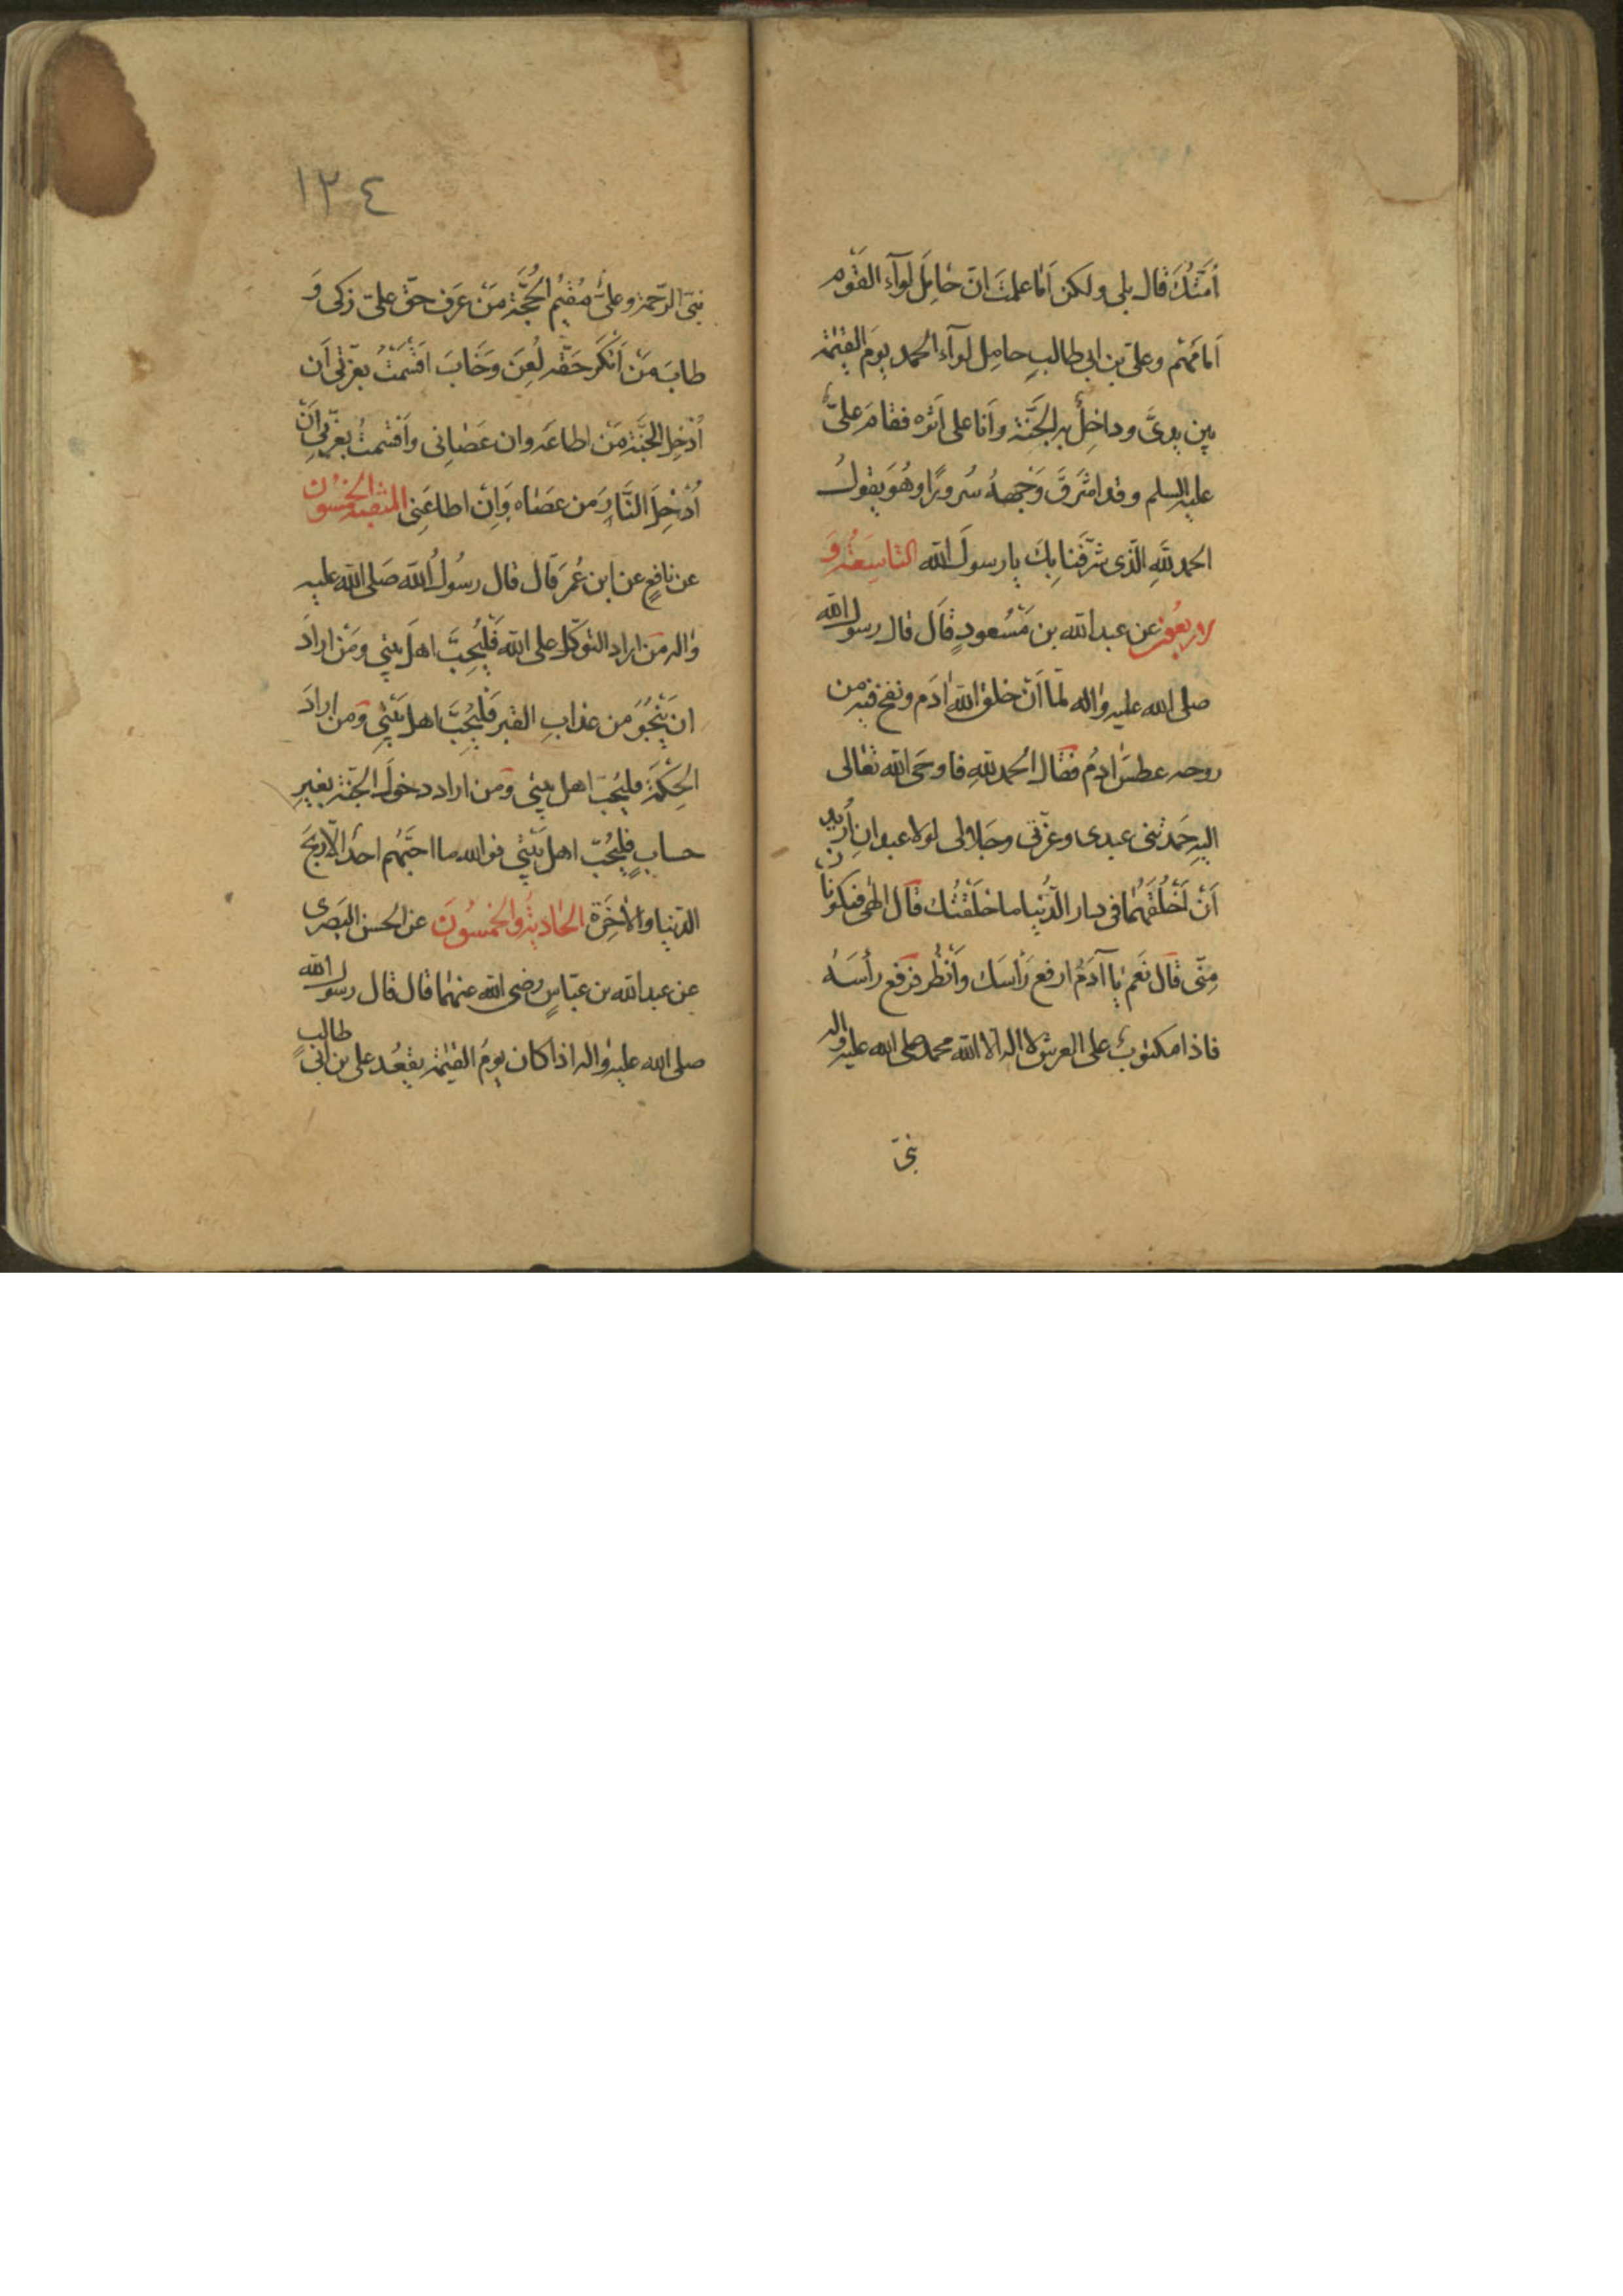 اُمَّتُكَ قال بلى ولكن اَمٰا علمتَ انّ حٰامِلَ لوآءِ القَوْم
اَمامَهُم وعلىّ بن ابى طالبٍ حامِل لوآءِ الحمد يومَ القيٰمة
بين يدىَّ وداخِلٌ بهِ الجَنَّة وَاَنا على اَثَرِه فقامَ علىٌّ
عليه السلم وقد اشرَقَ وَجْههُ سُرورًا وهُوَ يقولُ
الحمد لله الَّذى شرَّفَنا بِكَ يا رسولَ الله التاسِعَةُ وَ
لاربعُون عن عبد الله بن مَسْعودٍ قال قال رسول الله
صلى الله عليه واله لمّا اَنْ خلق اللهُ ادَم ونفخ فيه من
روحه عطسَ ادمُ فقال الحمد للهِ فاوحَى الله تعٰالى
اليه حَمدتنى عبدى وعزّتى وجَلالى لولا عبدانِ اُريدُ
اَنْ اَخْلُقَهُمٰا فى دار الدُّنيا ما خلَقْتُك قال الٰهى فيكونانِ
مِنّى قال نَعَم يا آدَمُ ارفع رَأسَك وَاَنْظُر فرَفع رأسَهُ
فاذا مكتوبٌ على العرش لا اله الا الله محمد صلى الله عليه واله
نبىّ
١٢٤
نبىّ الرّحمة وعلىٌّ مُقيمُ الحُجَّة مَنْ عرَف حقّ علىّ زكى وَ
طابَ مَنْ اَنْكَرَ حَقّه لُعِنَ وَخَابَ اَقسَمْتُ بعزّتى اَن
اُدْخِلَ الجنَّة مَنْ اطاعَه وان عَصٰانى واَقسمتُ بعزّتى اَنْ
اُدْخِلَ النَّارَ مَن عَصٰاه وَاِنْ اطاعَنِى المنقبة الخمسُون
عن نافعٍ عن ابن عُمرَ قال قال رسُولُ الله صَلى الله عليه
واله مَن اراد التوكّل على الله فَلْيُحِبَّ اهلَ بَيتى ومَنْ ارادَ
ان يَنْجُوَ من عذابِ القبر فَلْيُحِبَّ اهل بَيْتِى ومَن ارادَ
الحِكمَةَ فليُحبّ اهل بيتى ومَن اراد دخولَ الجَنّة بغيرِ
حسابٍ فليُحبّ اهل بَيْتى فوالله ما احبَّهُم احدٌ الّا ربحَ
الدّنيا والاٰخِرَة الحٰاديةُ والخمسُونَ عن الحسن البَصرى
عن عبد الله بن عبّاسٍ رضى الله عنهمٰا قال قال رسول الله
صلى الله عليه واله اذا كان يومُ القيٰمة يقعُد على بن ابى طالبٍ